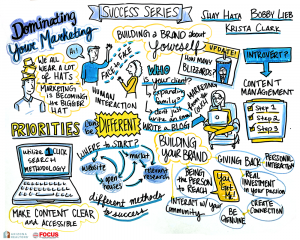 Dominating
Your Marketing
SUCCESS SERIES
SHAY HATA
BOBBY LIEB
KRISTA CLARK
Hi!
WE ALL
WEAR A LOT
OF HATS
MARKETING
IS BECOMING
THE BIGGER
HAT
FACE to FACE
HUMAN
INTERACTION
BUILDING A BRAND ABOUT
Yourself
WHO
is your client?
expanding
family?
WRITE A BLOG
UPDATE!
HOW MANY
BLIZZARDS?
MARKETING
INTROVERT?
CONTENT
MANAGEMENT
STEP 1
STEP 2
STEP 3
PRIORITIES
can be
DIFFERENT
UTILIZE 1 CLICK
SEARCH
METHODOLOGY
MAKE CONTENT CLEAR
and ACCESSIBLE
WHERE TO START?
website
market
open
houses
research
different methods
to success
BUILDING
YOUR BRAND
BEING THE
PERSON TO
REACH
INTERACT w/ YOUR
COMMUNITY
You Got
Me!
GIVING BACK
PERSONAL
INTERACTION
REAL
INVESTMENT
IN YOUR PASSION
BE
GENUINE
CREATE
CONNECTION
FOCUS